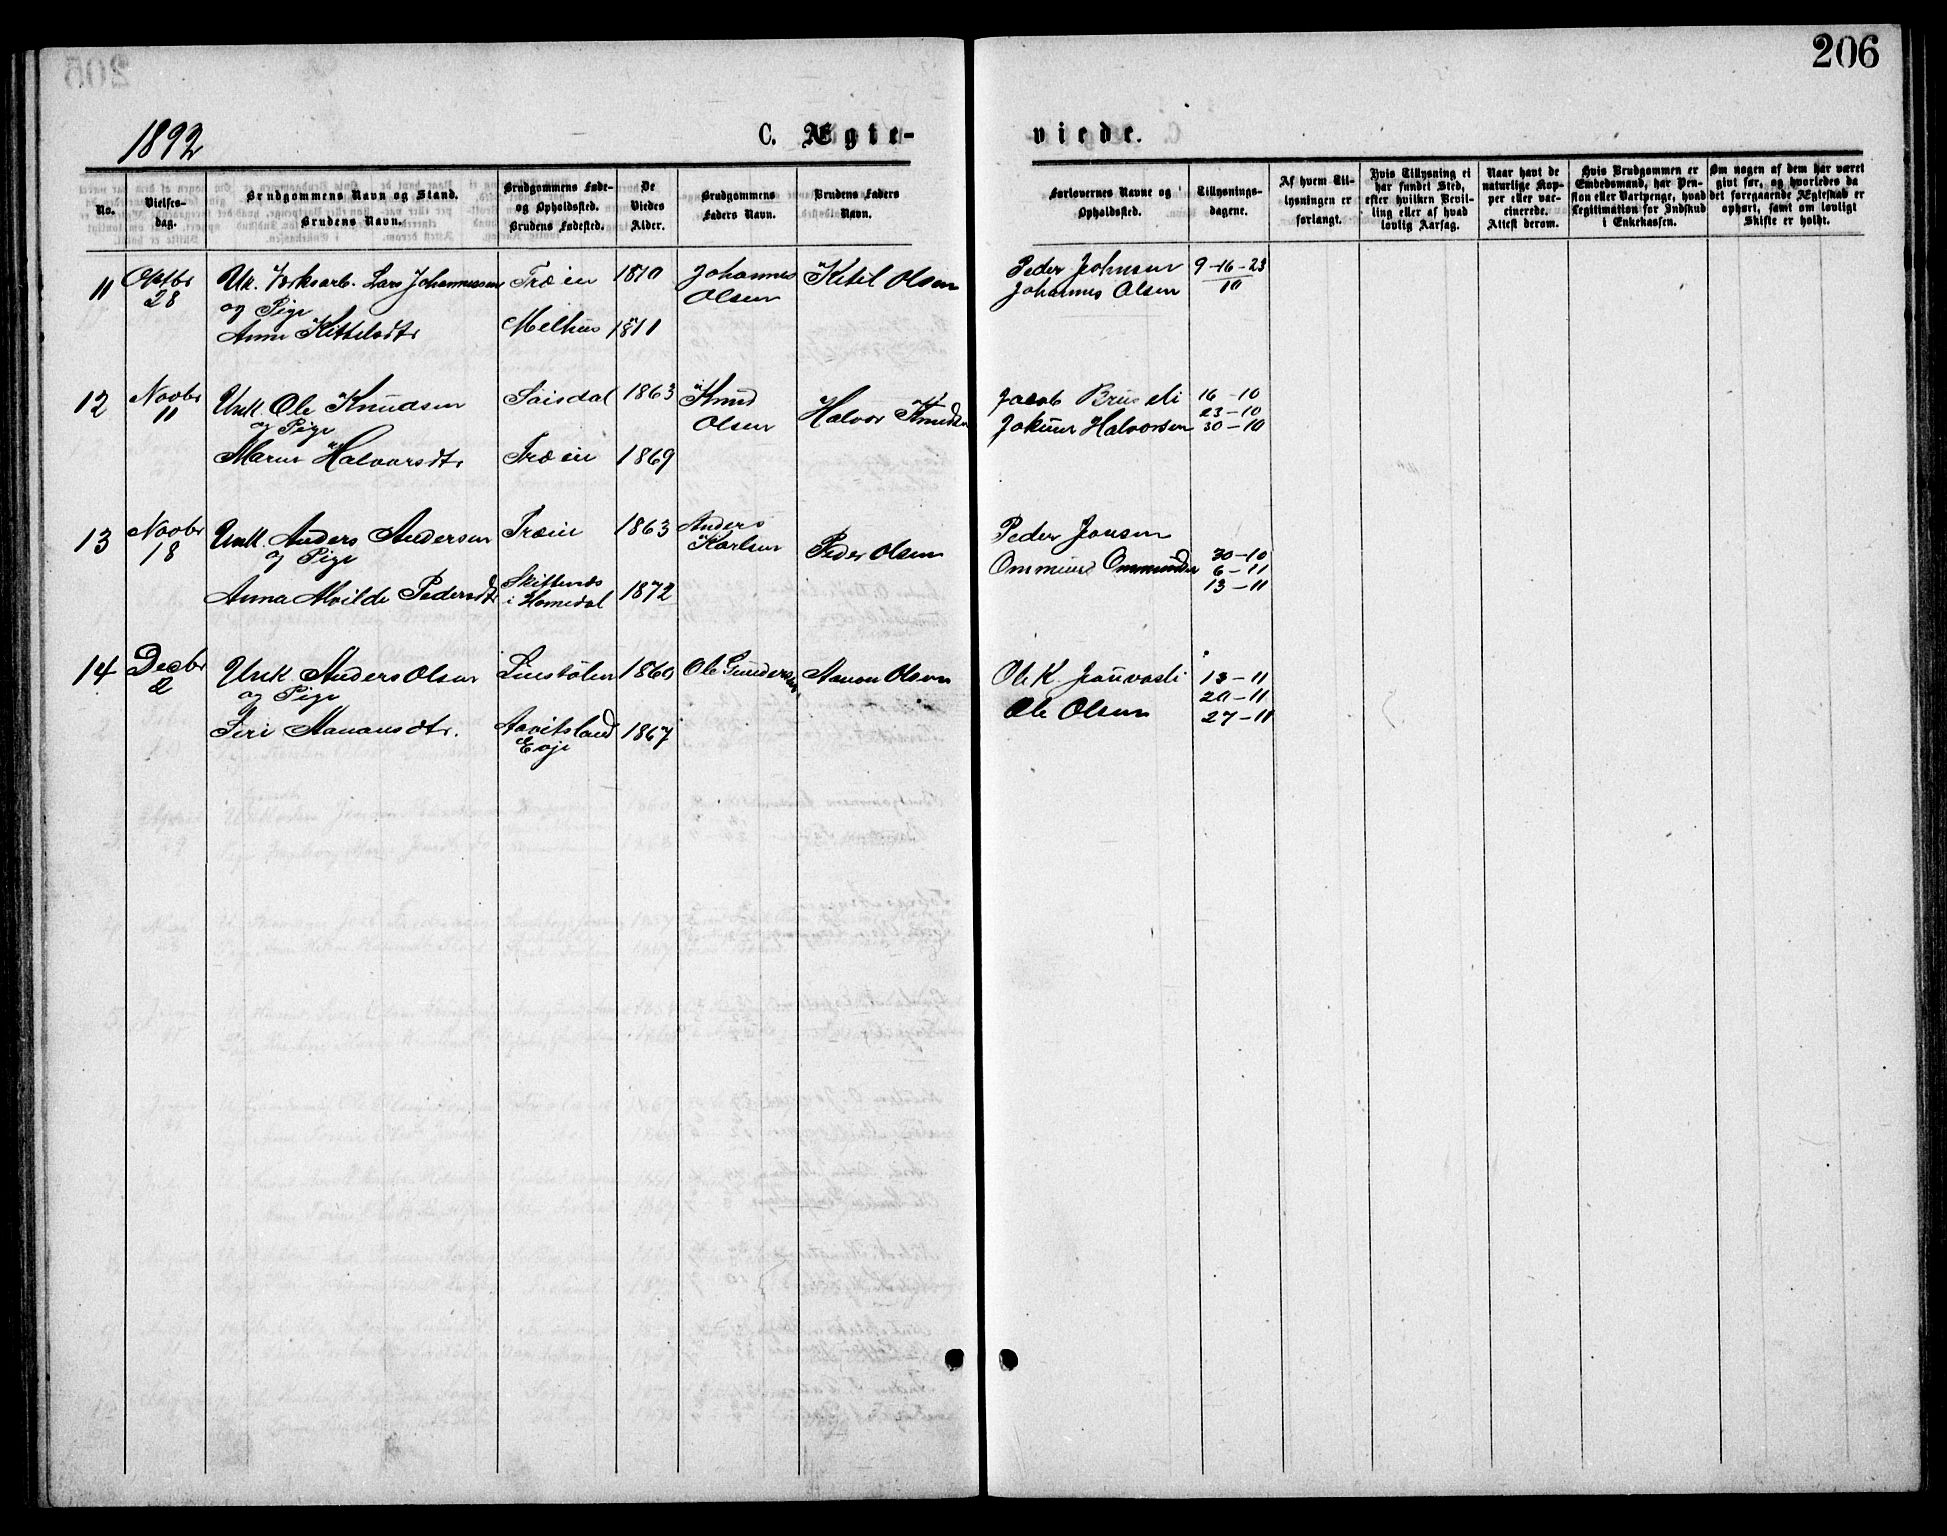 206
1892
C. Ægte-
viede.
No.
Vielses-
dag.
Brudgommens Navn og Stand.
Brudens Navn.
Brudgommens Føde-
og Opholdssted.
Brudens Fødested.
De
Viedes
Alder.
Brudgommens
Faders Navn.
Brudens Faders
Navn.
Forlovernes Navne og
Opholdssted.
Tillysnings-
dagene.
Af hvem Til-
lysningen er
forlangt.
Hvis Tillysning ei
har fundet Sted,
efter hvilken Bevil-
ling eller af hvad
lovlig Aarsag.
Naar havt de
naturlige Kop-
per eller vac-
cinerede.
Attest derom.
Hvis Brudgommen er
Embedsmand, har Pen-
sion eller Vartpenge, hvad
Legitimation for Indskud
i Enkekassen.
Om nogen af dem har været
givt før, og hvorledes da
det foregaaende Ægteskab er
ophørt, samt om lovligt
Skifte er holdt.
11 Oktbr 28 Uk. Lars Johannessen Træin 1870 Johannes Olsen Kitil Olsen Peder Johnsen 9-16-23
og Pige Johannes Olsen 10
Anne Kittelsdtr Melhus 1871
12 Novbr 11 Unk. Ole Knudsen 1863 Knud Olsen Halvor Knudsen Jacob 16-10
og Pige Halvorsen 23-10
30-10
Maren Halvorsdtr Træin 1869
13 Novbr 18 Unk. Anders Andersen Træin 1863 Anders Karlsen Peder Olsen Peder Jonsen
og Pige 30-10
6-11
Anna Alvilde Pedersdt i Homedal 1872 13-11
14 Decbr 2 Unk Anders Olsen 1860 Ole Gundersen Aanon Olsen Ole K. 13-11
og Pige 20-11
Siri Aanonsdtr. Aavitsland Evje 1867 Ole Olsen 27-11